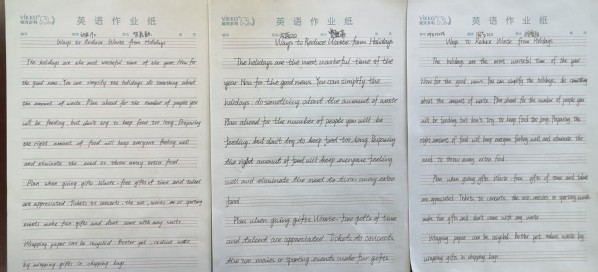 英语作业纸
Ways to Reduce Waste from Holidays
The holidays are the most wasteful time of the year. Now for
the good news. You can simplify the holidays do something about
the amount of waste. Plan ahead for the number of people you
will be feeding, but don't try to keep food too long. Preparing
the right amount of food will keep everyone feeling well
and eliminate the need to throw away extra food.
Plan when giving gifts. Waste-free gifts of time and talent
are appreciated. Tickets to concerts, the zoo, movies or sporting
events make fun gifts and don't come with any waste.
Wrapping paper can be recycled. Better yet, reduce waste
by wrapping gifts in shopping bags
英语作业纸
Ways to Reduce Waste from Holidays
The holidays are the most wasteful time of the
year. Now for the good news. You can simplify the
holidays, do something about the amount of waste.
Plan ahead for the number of people you will be
feeding, but don't try to keep food too long. Preparing
the right amount of food will keep everyone feeling
well and eliminate the need to throw away extra
food.
Plan when giving gifts. Waste-free gifts of time
and talent are appreciated. Tickets to concerts,
the zoo, movies or sporting events make fun gifts
英语作业纸
Ways to Reduce Waste from Holidays
The holidays are the most wasteful time of the year.
Now for the good news. You can simplify the holidays, do something
about the amount of waste. Plan ahead for the number of people you
will be feeding, but don't try to keep food too long. Preparing the
right amount of food will keep everyone feeling well and eliminate the
need to throw away extra food.
Plan when giving gifts. Waste-free gifts of time and talent
are appreciated. Tickets to concerts, the zoo, movies or sporting events
make fun gifts and don't come with any waste.
Wrapping paper can be recycled. Better yet, reduce waste by
wrapping gifts in shopping bags